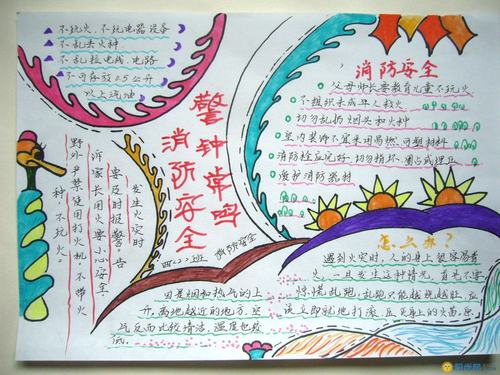 不玩火、不玩电器设备
不乱丢火种
不乱拉电线、电路
不可存放0.5公升
以上汽油
警钟常鸣
消防安全
消防安全
父母师长要教育儿童不玩火
不组织未成年人救火
切勿乱扔烟头和火种
室内装饰不宜采用易燃、可塑材料
消防栓应完好,切勿损坏、圈占或埋卫
爱护消防器材
发生火灾时
要及时报警。告
诉家长用火要小心安全
野外严禁使用打火机。不带火
种,不玩火。
四(2)班
消防安全
怎么办?
遇到火灾时,人的身上很容易着
火,一旦发生这种情况,首先不要
惊慌乱跑,乱跑只能越烧越旺,应
该立即就地打滚,压灭身上的火苗,原
因是烟和热气的上
升,离地越近的地方,空
气反而比较清洁,温度也较
低。